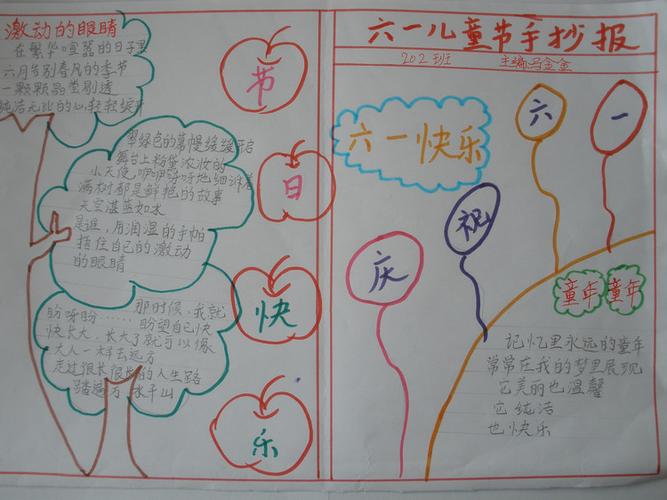 激动的眼睛
在繁华喧嚣的日子里
六月告别春风的季节
一颗颗晶莹剔透
纯洁无比的心轻轻绽开
翠绿色的幕幔缓缓开启
舞台上粉黛浓妆的
小天使,咿咿呀呀地细诉着
满树都是鲜艳的故事
天空湛蓝如水
是谁,用润湿的手帕
捂住自己的激动
的眼睛
盼呀盼……那时候,我就
盼望自己快
快长大,长大了就可以像
大人一样去远方
走过很长很长的人生路
踏遍万水千山
节
日
快
乐
六一儿童节手抄报
202班
主编马金金
六一快乐
六
一
祝
庆
童年
童年
记忆里永远的童年
常常在我的梦里展现
它美丽也温馨
它纯洁
也快乐